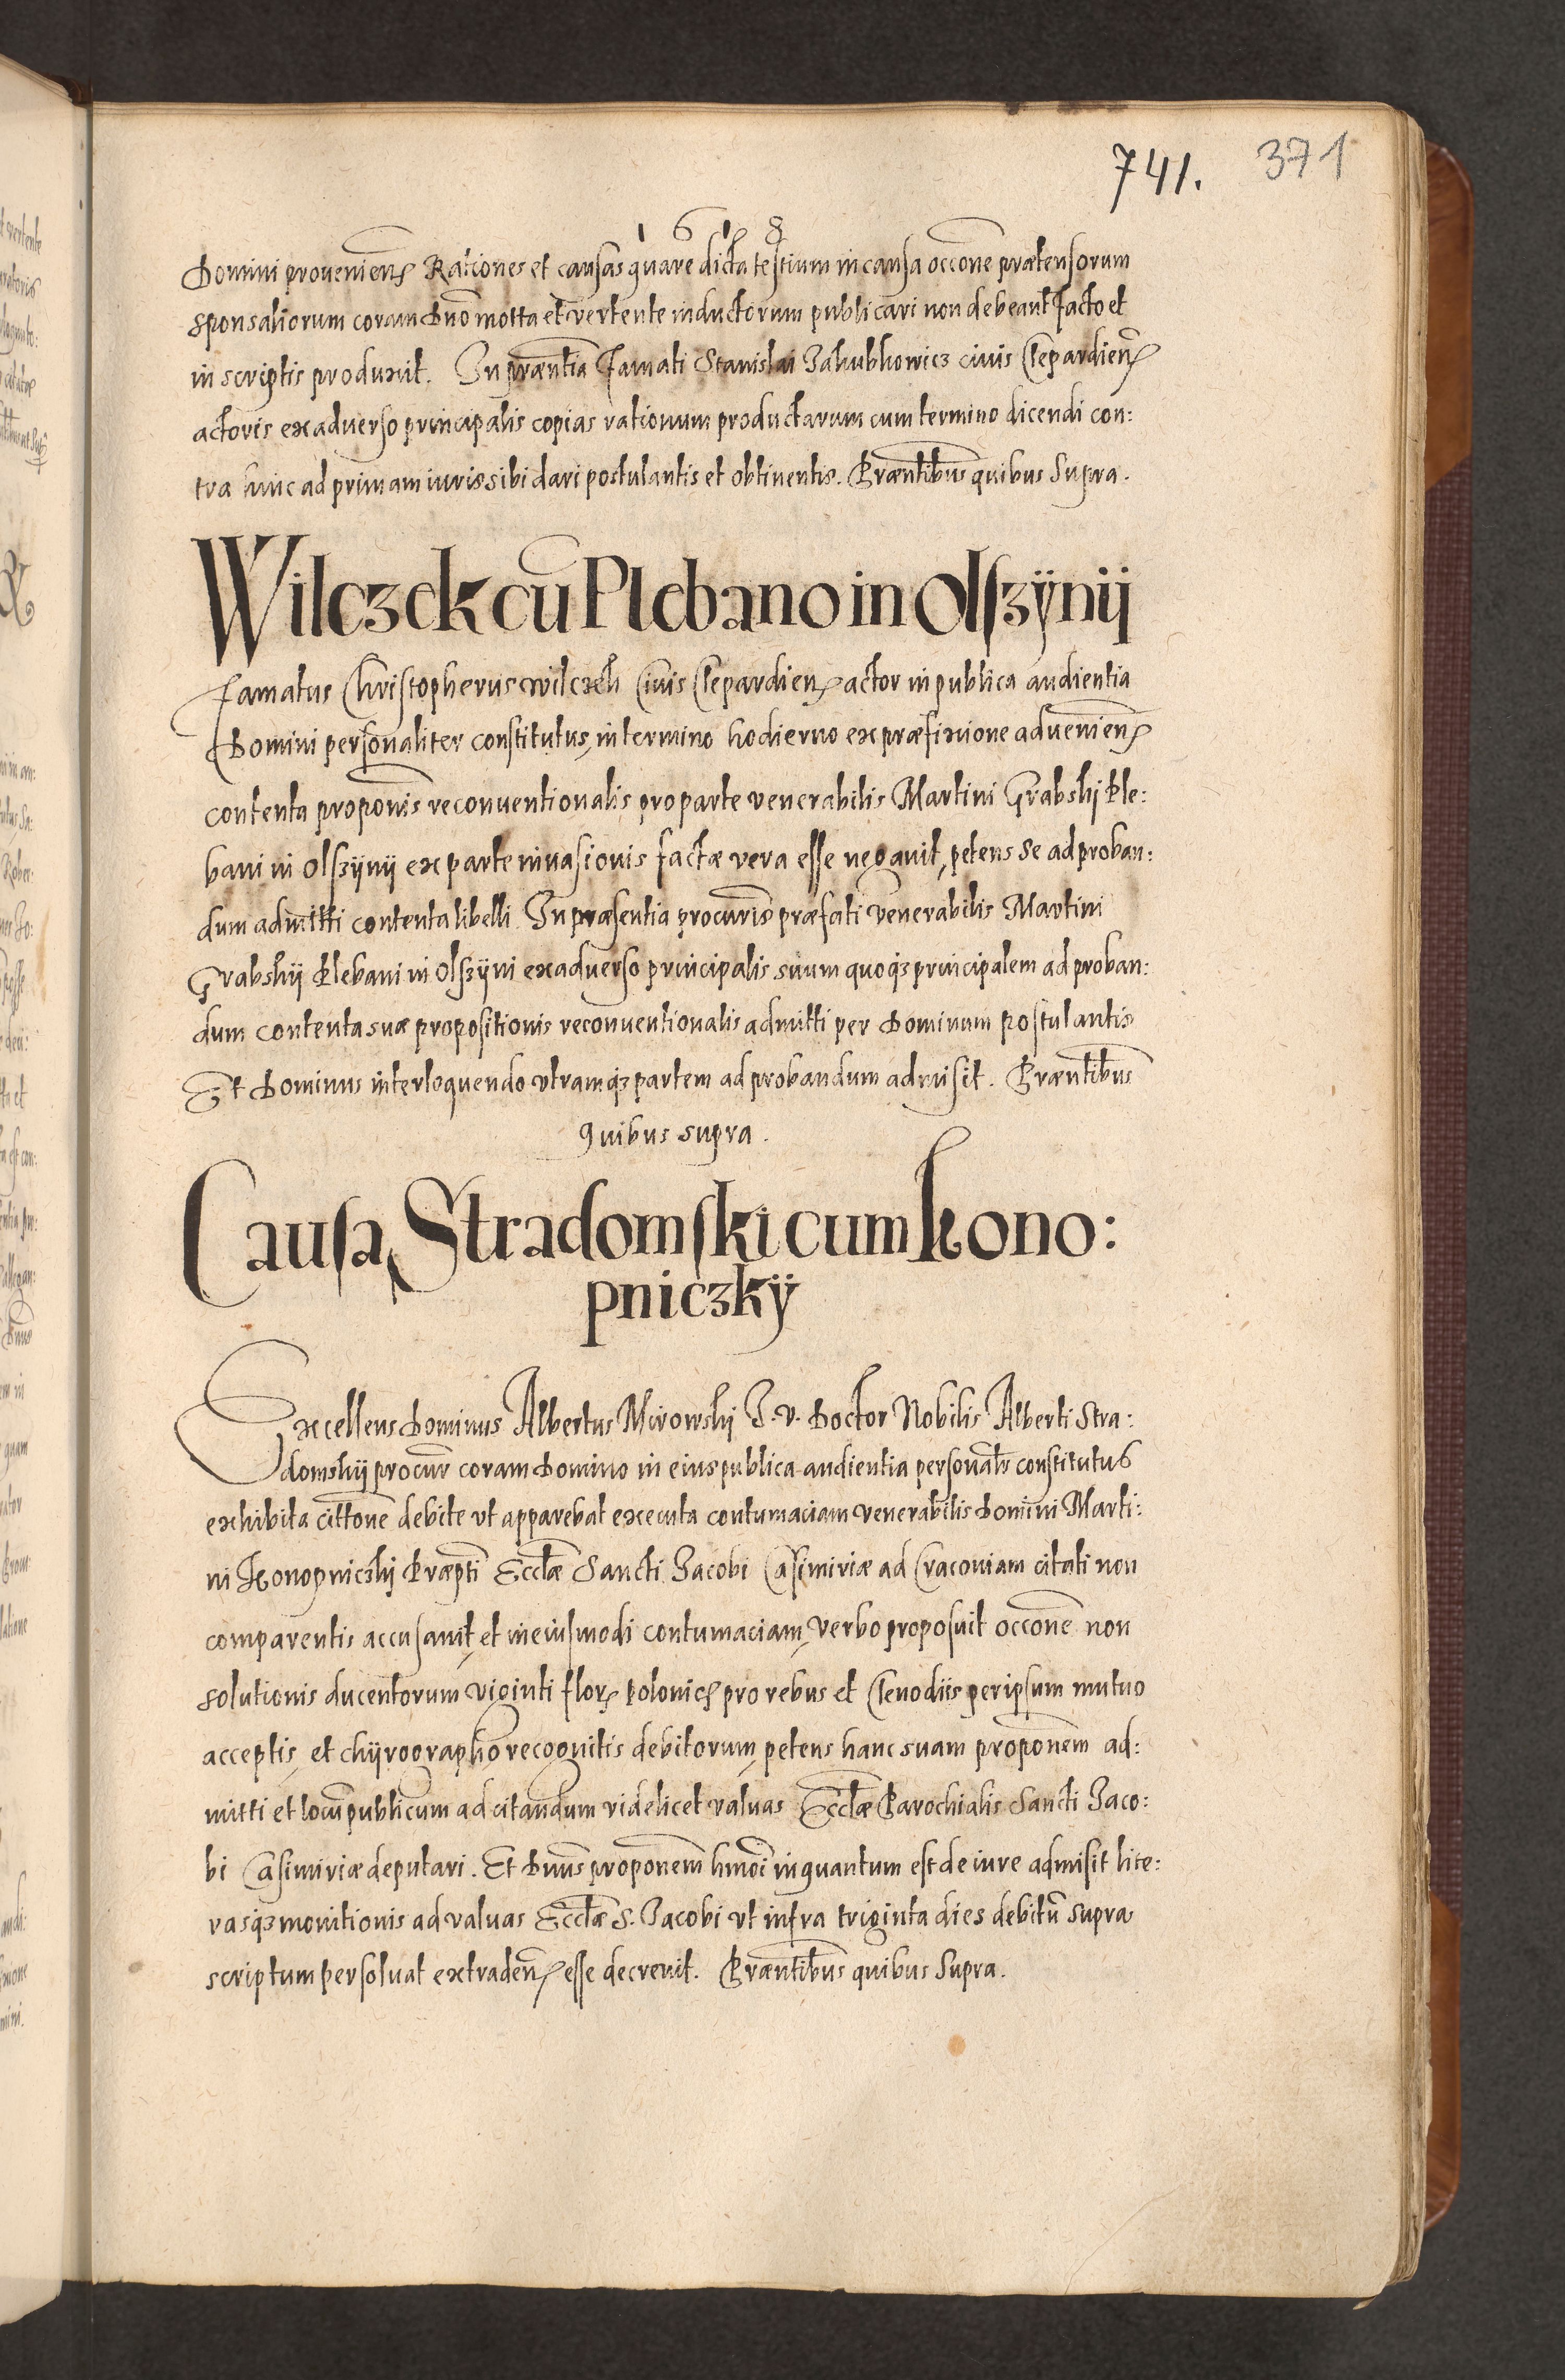 741. 371
1618
Domini provenien. Rationes et causas quare dicta testium in causa occone prætensorum
sponsaliorum coram Dno motta et vertente inductorum publicari non debeant facto et
in scriptis produxit. In præntia Famati Stanislai Jakubkowicz civis Clepardien.
actoris ex adverso principalis copias rationum productarum cum termino dicendi con:
tra hinc ad primam iuris sibi dari postulantis et obtinentis. Præntibus quibus Supra.
Wilczek cu Plebano in Olszÿnij
Famatus Christopherus Wilczek Civis Clepardien. actor in publica audientia
Domini personaliter constitutus, in termino hodierno ex præfixione advenien.
contenta proponis reconventionalis pro parte venerabilis Martini Grabski Ple:
bani in Olszÿnij ex parte invasionis factæ vera esse negavit, petens se ad proban:
dum admitti contenta libelli. In præsentia procuris præfati venerabilis Martini
Grabskij Plebani in Olszÿni ex adverso principalis suum quoq3 principalem ad proban:
dum contenta suæ propositionis reconventionalis admitti per Dominum postulantis
Et Dominus interloquendo utramq3 partem ad probandum admisit. Præntibus
quibus supra.
Causa Stradomski cum Kono:
pniczkÿ
Excellens Dominus Albertus Mirowski J. V. Doctor Nobilis Alberti Stra:
domskij procur coram Domino in eius publica audientia personalr constitutus
exhibita cittone debite ut apparebat executa contumaciam venerabilis Domini Marti:
ni Konopniczki Præpti Ecclæ Sancti Jacobi Casimiriæ ad Cracoviam citati non
comparentis accusavit, et in eiusmodi contumaciam, verbo proposuit occone non
solutionis ducentorum viginti flor. polonic. pro rebus et clenodiis per ipsum mutuo
acceptis, et chÿrographo recognitis debitorum, petens hanc suam proponem ad:
mitti et locum publicum ad citandum videlicet valvas Ecclæ Parochialis Sancti Jaco:
bi Casimiriæ deputari. Et Dnus proponem hmoi in quantum est de iure admisit lite:
rasq3 monitionis ad valvas Ecclæ S. Jacobi ut infra triginta dies debitu supra
scriptum persolvat extraden. esse decrevit. Præntibus quibus Supra.